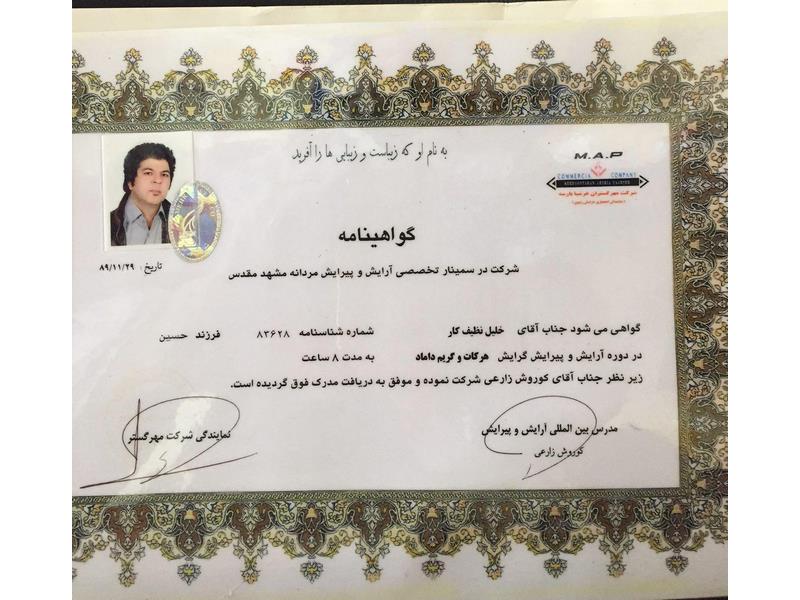 به نام او که زیباست و زیبایی ها را آفرید
M.A.P
COMMERCIAL COMPANY
شرکت مهر گستران عرشیا پارسه
گواهینامه
تاریخ: ۸۹/۱۱/۲۹
شرکت در سمینار تخصصی آرایش و پیرایش مردانه مشهد مقدس
گواهی می شود جناب آقای خلیل نظیف کار شماره شناسنامه ۸۳۶۲۸ فرزند حسین
در دوره آرایش و پیرایش گرایش هرکات و گریم داماد به مدت ۸ ساعت
زیر نظر جناب آقای کوروش زارعی شرکت نموده و موفق به دریافت مدرک فوق گردیده است.
مدرس بین المللی آرایش و پیرایش
کوروش زارعی
نمایندگی شرکت مهرگستر